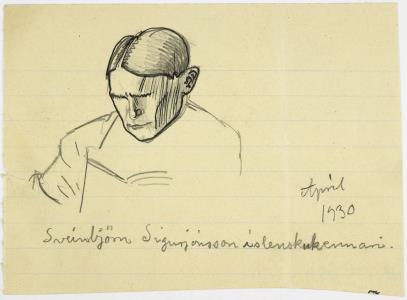 Apríl
1930
Sveinbjörn Sigurjónsson íslenskukennari.